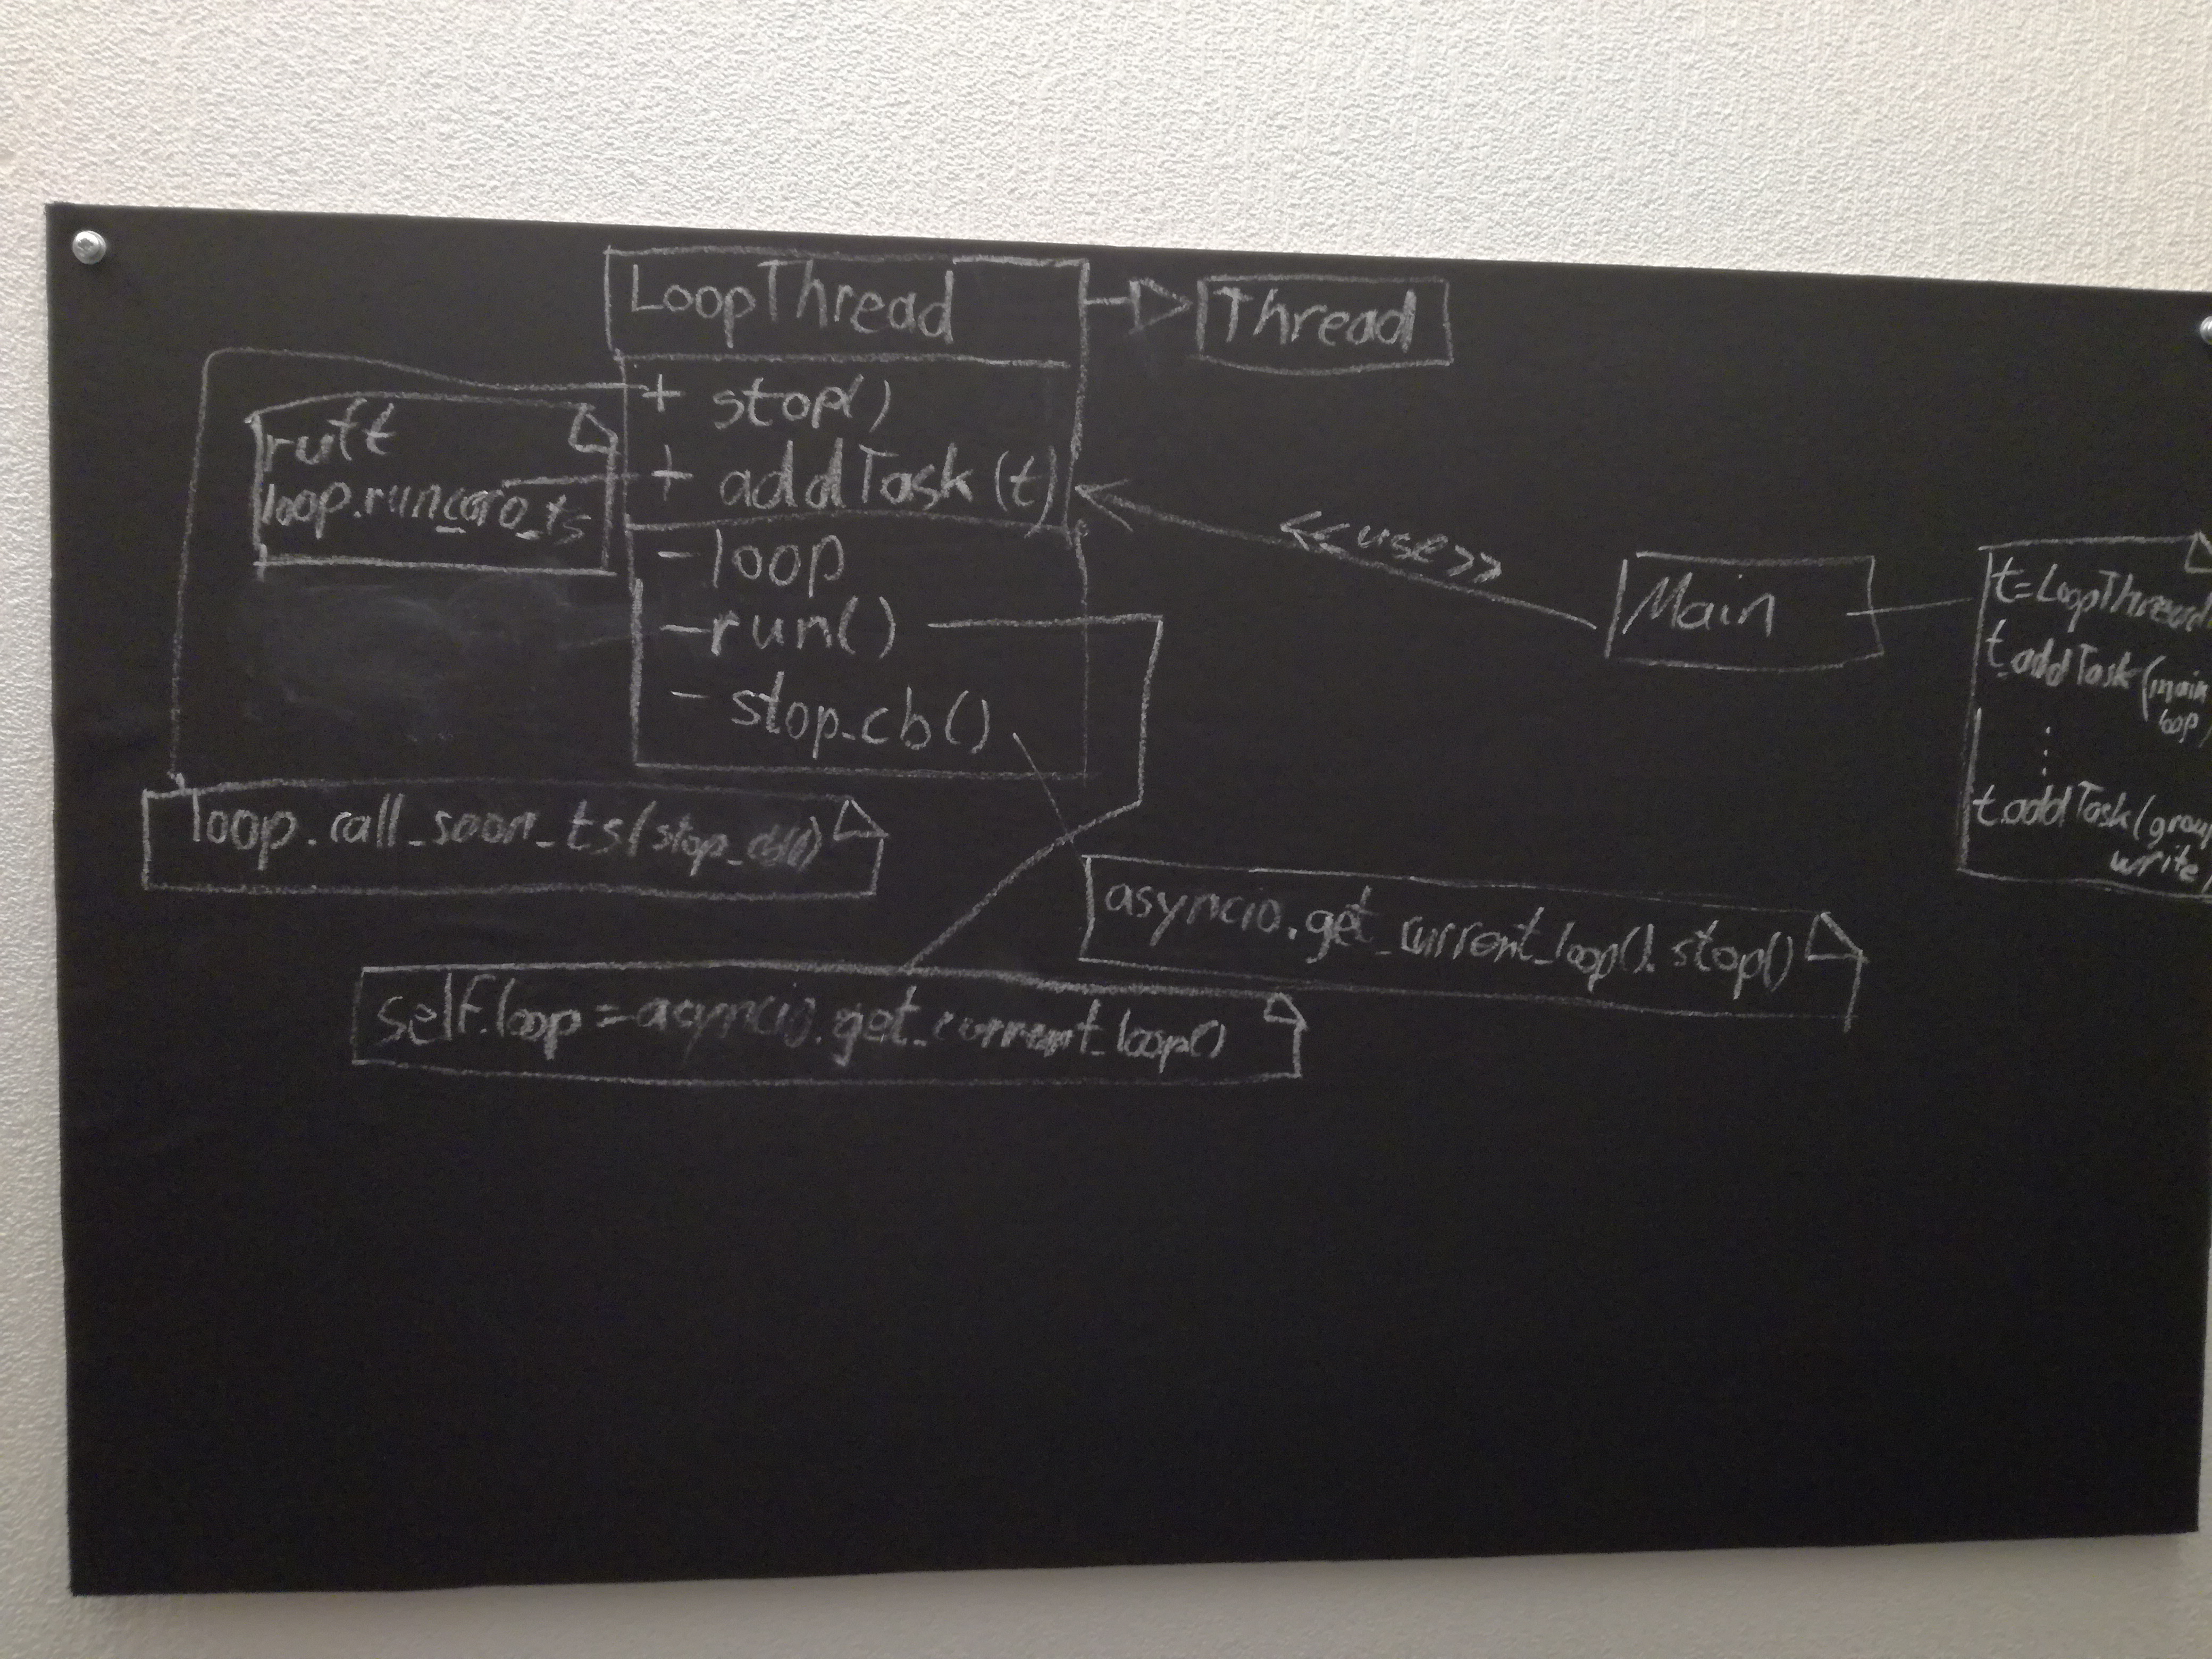 LoopThread
Thread
+ stop()
+ addTask(t)
- loop
- run()
- stop_cb()
ruft
loop.run_coro_ts
<<use>>
Main
t=LoopThread
t.addTask(main
loop)
⋮
t.addTask(grou
write)
loop.call_soon_ts(stop_cb())
asyncio.get_current_loop().stop()
self.loop=asyncio.get_current_loop()